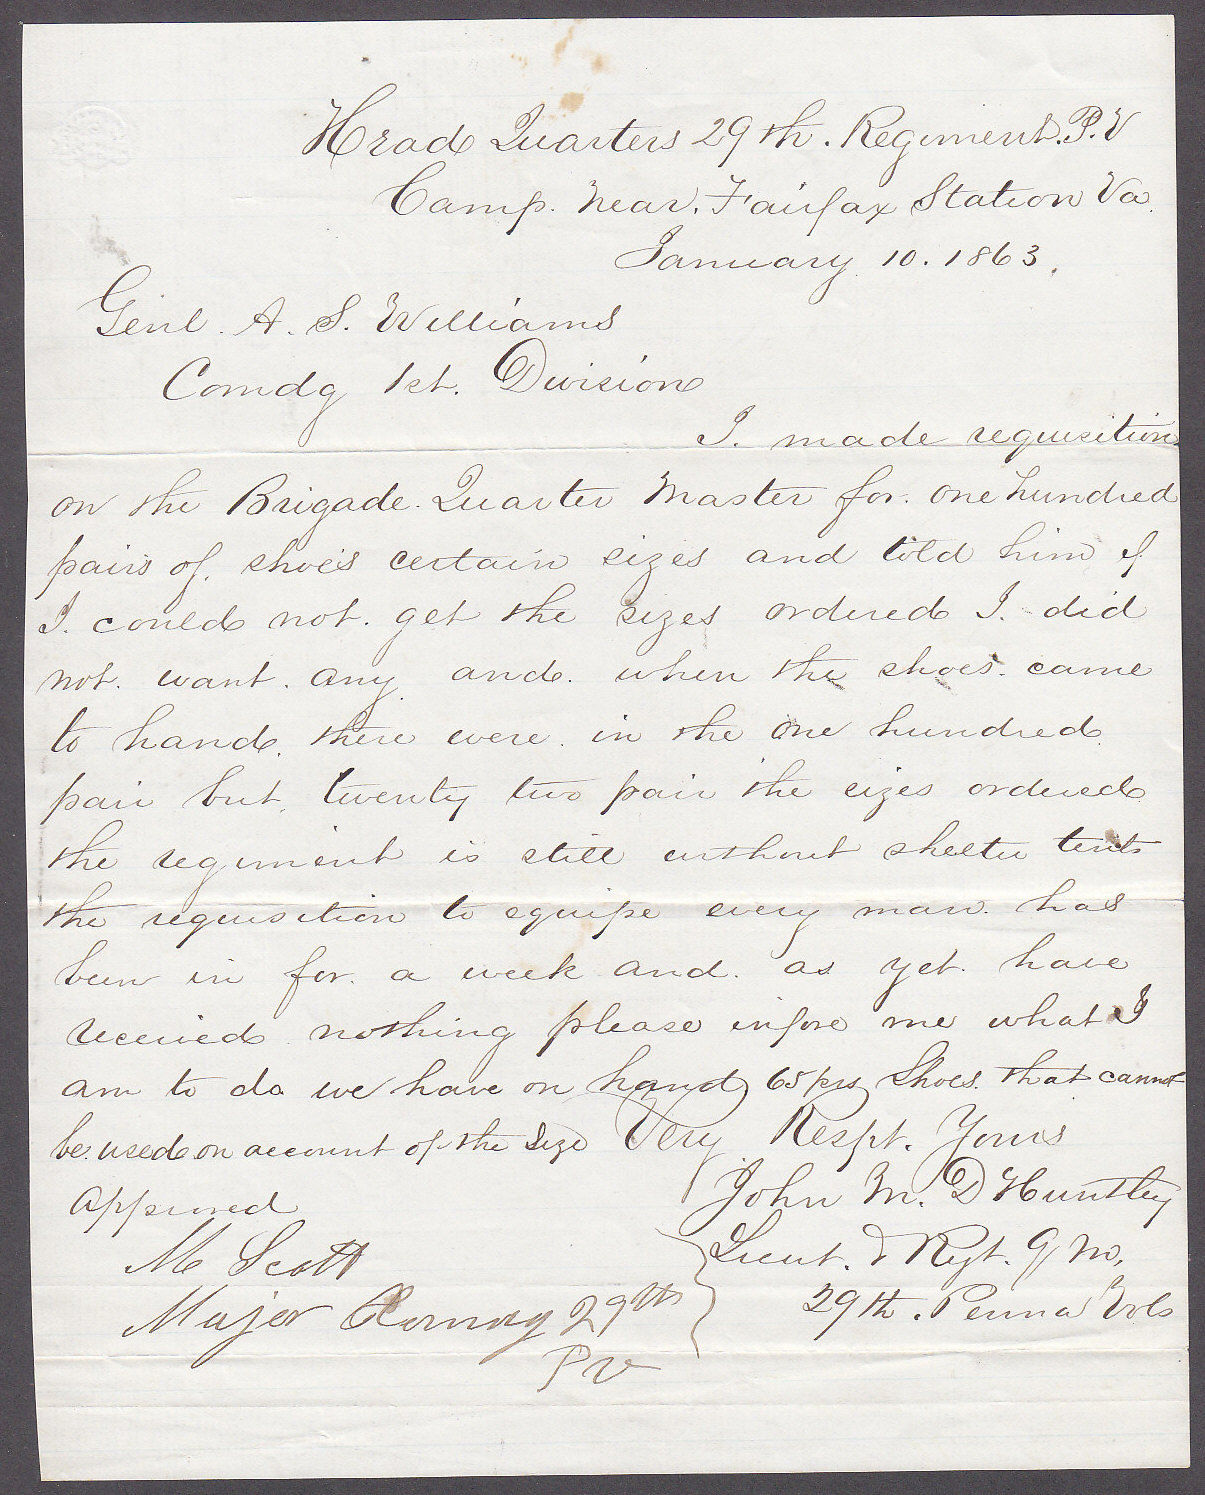 Head Quarters 29th. Regiment. P. V
Camp. Near. Fairfax Station Va.
January 10. 1863.
Genl. A. S. Williams
Comdg 1st. Division
I. made requisition
on the Brigade. Quarter Master for. one hundred
pairs of. shoes certain sizes and told him if
I. could not. get the sizes ordered I. did
not. want. any and. when the shoes. came
to hand. there were. in the one hundred.
pair but. twenty two pair the sizes ordered
the regiment is still without shelter tents
the requisition to equipe every man. has
been in for. a week and. as yet. have
received nothing please infore me what I
am to do we have on hand 65 prs Shoes. that cannot
be. used on account of the size Very Respt. Yours
John M. D Huntley
approved
M Scott
Lieut. & Regt. Q M.
Major Comdg 29th
29th. Penna Vols
P V